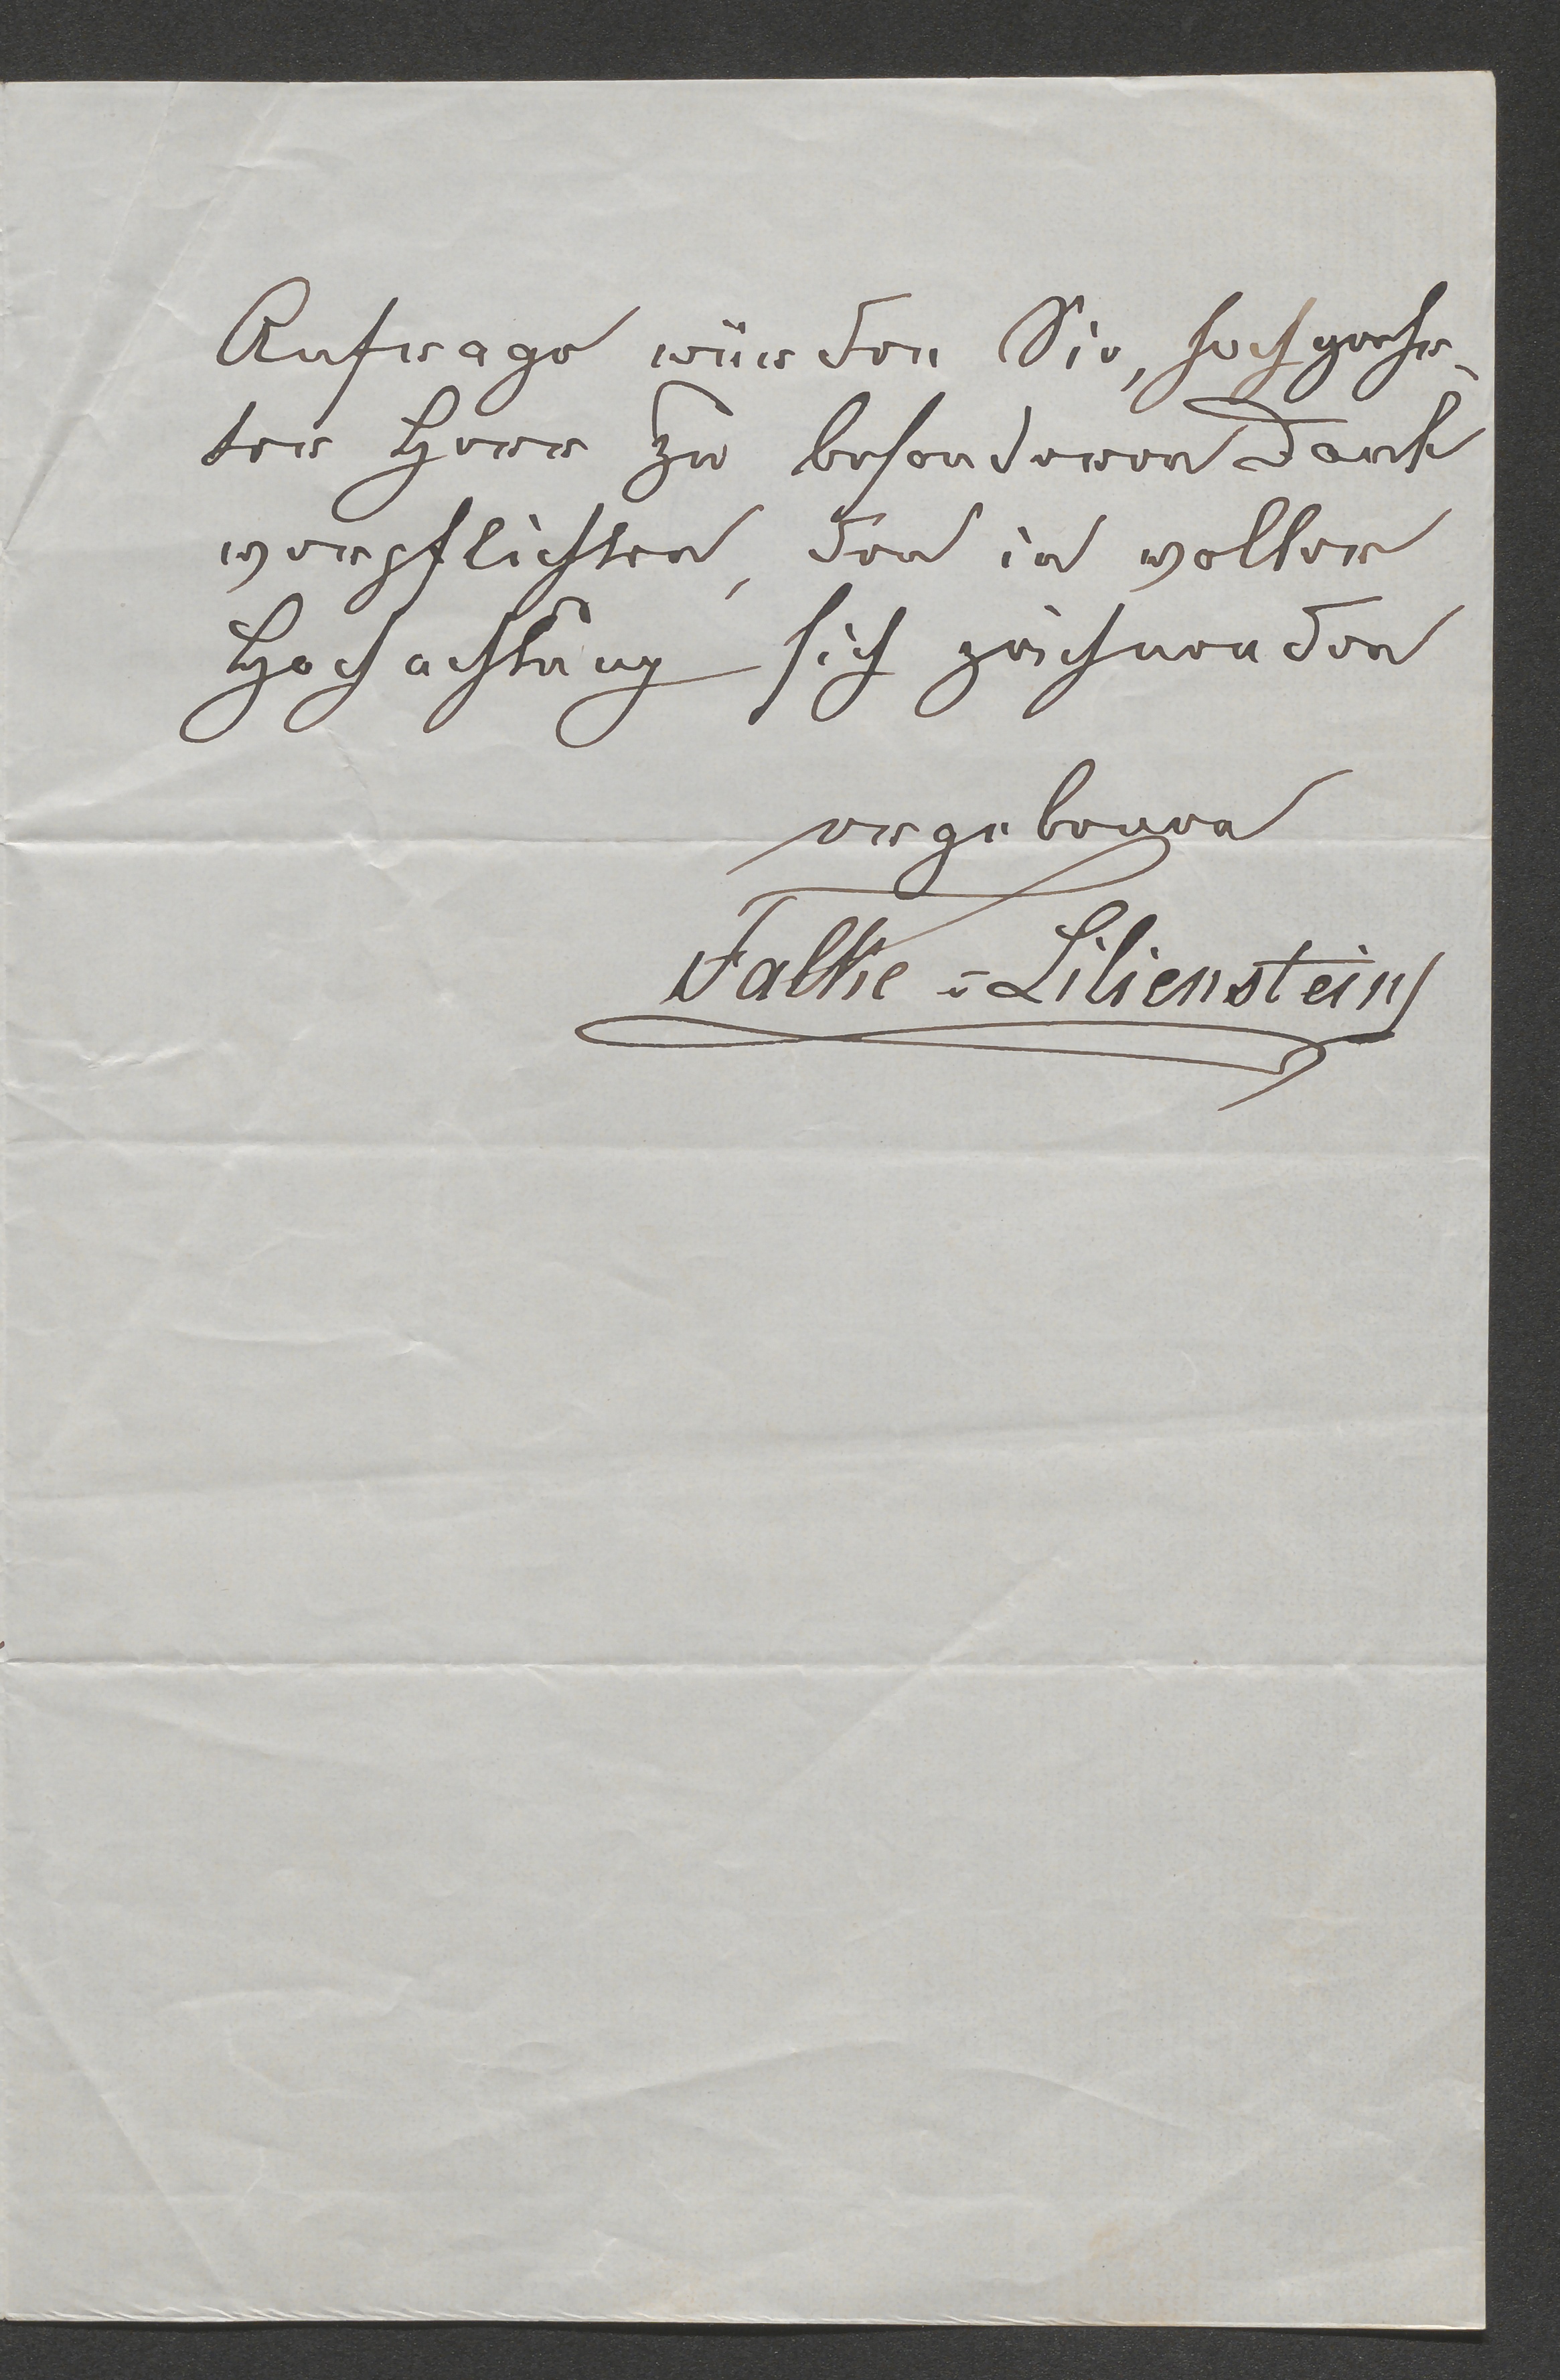 Anfrage würden Sie, hochgeehr-
ter Herr zu besonderen Dank
verpflichten, den in voller
Hochachtung sich zeichnenden
ergebenen
Falke v Lilienstein